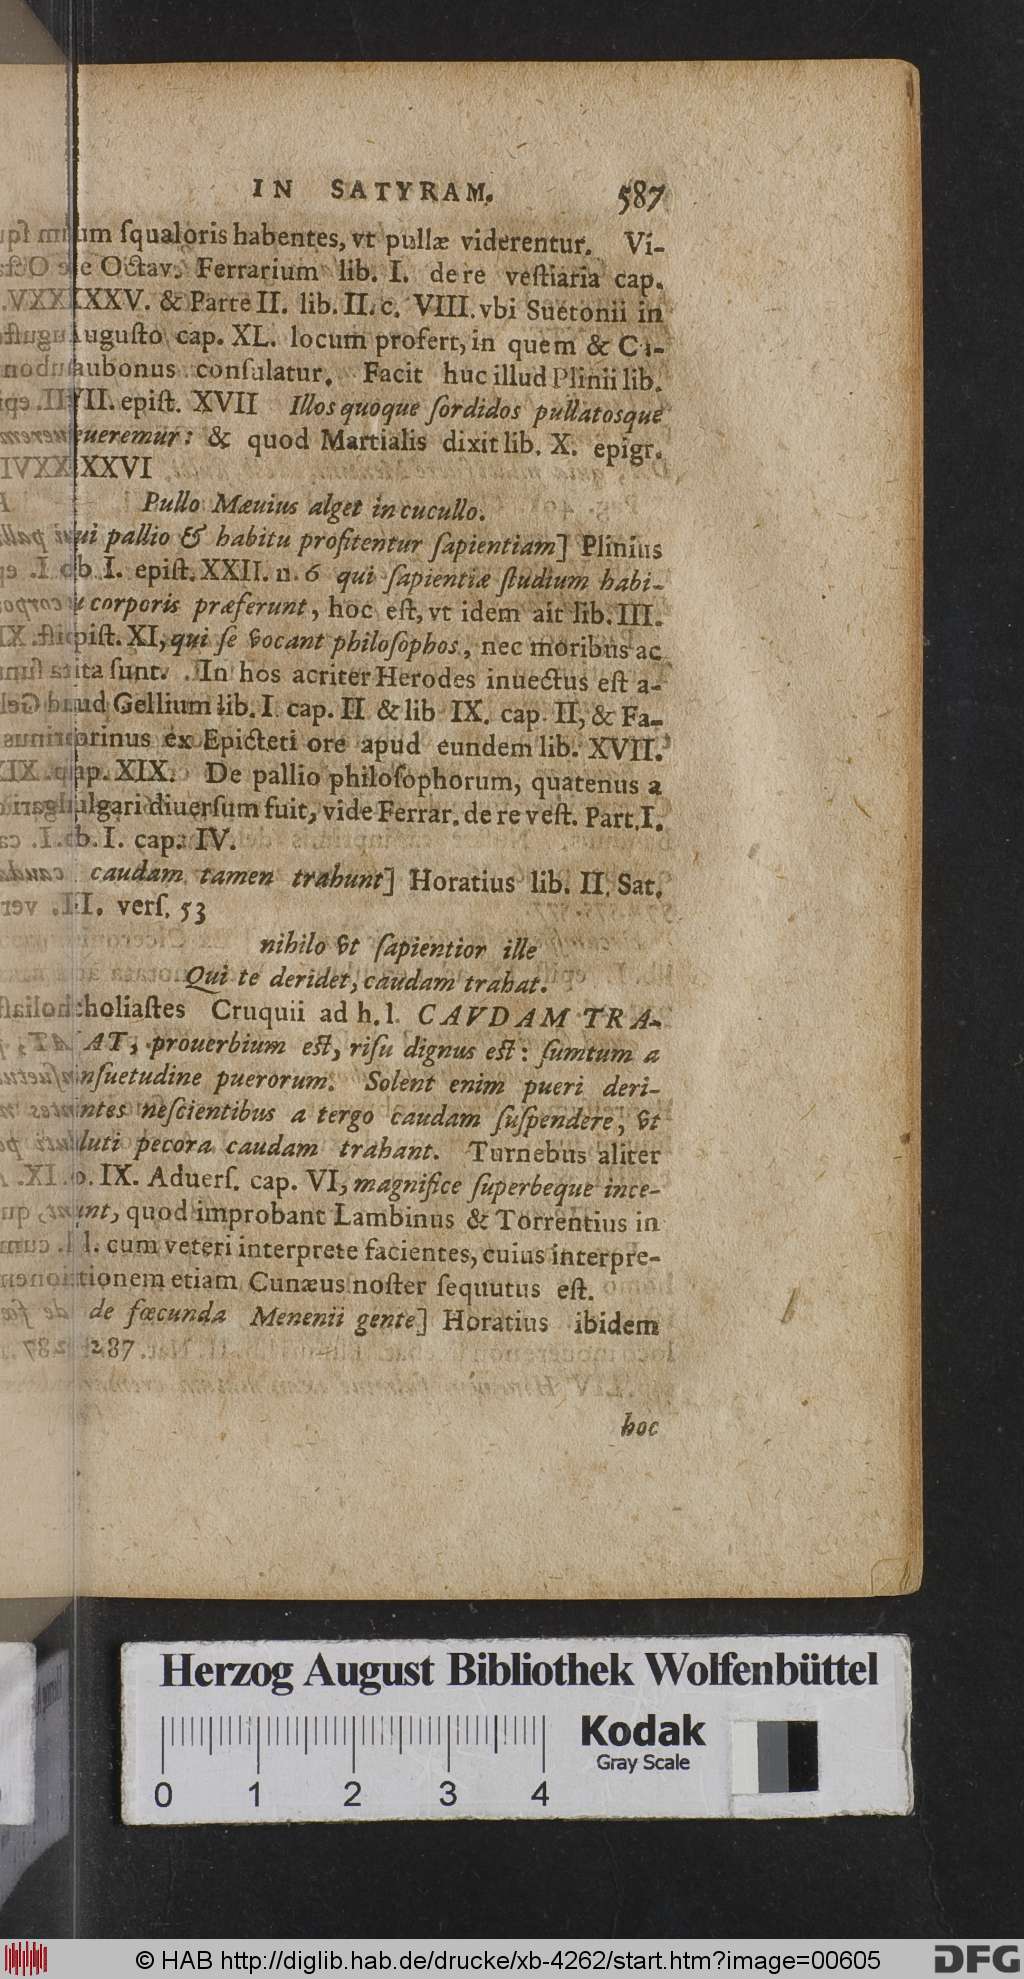 IN SATYRAM. 587
um ſqualoris habentes, vt pullæ viderentur. Vi-
e Octav. Ferrarium lib. I. de re veſtiaria cap.
XXV. & Parte II. lib. II. c. VIII. vbi Suetonii in
uguſto cap. XL. locum profert, in quem & Ca-
aubonus conſulatur. Facit huc illud Plinii lib.
VII. epiſt. XVII Illos quoque ſordidos pullatosque
eueremur: & quod Martialis dixit lib. X. epigr.
XXVI
Pullo Mæuius alget in cucullo.
ui pallio & habitu profitentur ſapientiam] Plinius
b. I. epiſt. XXII. n. 6 qui ſapientiæ ſtudium habi-
u corporis præferunt, hoc eſt, vt idem ait lib. III.
piſt. XI, qui ſe vocant philoſophos, nec moribus ac
ita ſunt. In hos acriter Herodes inuectus eſt a-
ud Gellium lib. I. cap. II & lib IX. cap. II, & Fa-
orinus ex Epicteti ore apud eundem lib. XVII.
ap. XIX. De pallio philoſophorum, quatenus a
ulgari diuerſum fuit, vide Ferrar. de re veſt. Part. I.
b. I. cap. IV.
caudam tamen trahunt] Horatius lib. II. Sat.
II. verſ. 53
nihilo vt ſapientior ille
Qui te deridet, caudam trahat.
choliaſtes Cruquii ad h. l. CAVDAM TRA-
AT, prouerbium eſt, riſu dignus eſt: ſumtum a
nſuetudine puerorum. Solent enim pueri deri-
ntes neſcientibus a tergo caudam ſuſpendere, vt
luti pecora caudam trahant. Turnebus aliter
b. IX. Aduerſ. cap. VI, magnifice ſuperbeque ince-
unt, quod improbant Lambinus & Torrentius in
l. cum veteri interprete facientes, cuius interpre-
tionem etiam Cunæus noſter ſequutus eſt.
de fœcunda Menenii gente] Horatius ibidem
287
hoc
Herzog August Bibliothek Wolfenbüttel
Kodak
Gray Scale
0 1 2 3 4
© HAB http://diglib.hab.de/drucke/xb-4262/start.htm?image=00605
DFG